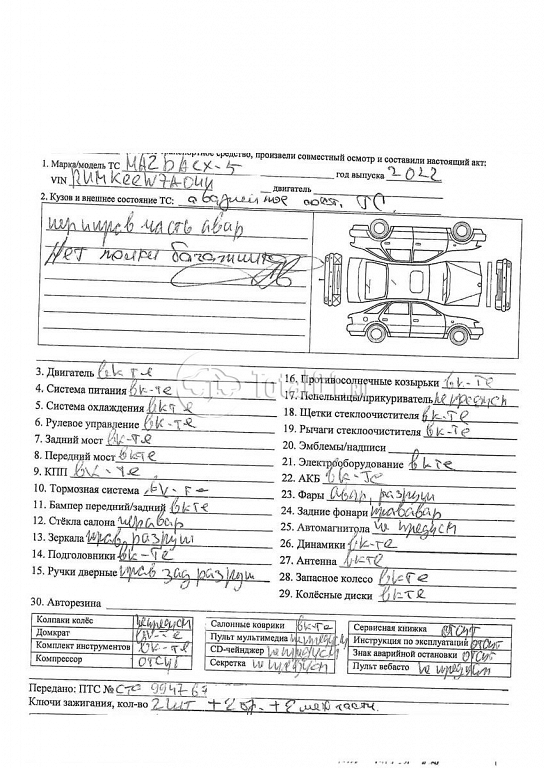 транспортное средство, произвели совместный осмотр и составили настоящий акт:
1. Марка/модель ТС MAZDA CX-5 год выпуска 2022
VIN двигатель
2. Кузов и внешнее состояние ТС: ТС.
часть авар
Нет полки
3. Двигатель в к-те
4. Система питания вк-те
5. Система охлаждения вкте
6. Рулевое управление вк-те
7. Задний мост вк-те
8. Передний мост вкте
9. КПП вк-те
10. Тормозная система вк-те
11. Бампер передний/задний вкте
12. Стёкла салона
13. Зеркала прав, разруш
14. Подголовники вк-те
15. Ручки дверные прав зад разруш
16. Противосолнечные козырьки вк-те
17. Пепельницы/прикуриватель не предусм
18. Щетки стеклоочистителя вк-те
19. Рычаги стеклоочистителя вк-те
20. Эмблемы/надписи
21. Электрооборудование вкте
22. АКБ вк-те
23. Фары авар, разруш
24. Задние фонари
25. Автомагнитола не предусм
26. Динамики вк-те
27. Антенна вкте
28. Запасное колесо вкте
29. Колёсные диски вк-те
30. Авторезина
Колпаки колёс не предусм
Домкрат вк-те
Комплект инструментов вк-те
Компрессор отсут
Салонные коврики вк-те
Пульт мультимедиа не предусм
CD-чейнджер не предусм
Секретка не предусм
Сервисная книжка отсут
Инструкция по эксплуатации отсут
Знак аварийной остановки отсут
Пульт вебасто не предусм
Передано: ПТС № СТС 994767
Ключи зажигания, кол-во 2 шт